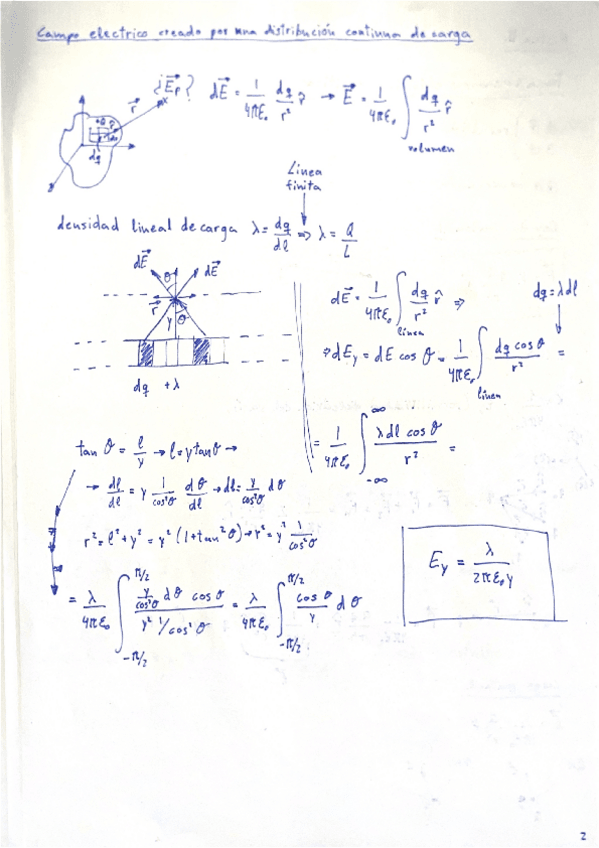 Campo electrico creado por una distribución continua de carga
¿E⃗p? dE⃗ = 1/4πε₀ dq/r² r̂ → E⃗ = 1/4πε₀ ∫volumen dq/r² r̂
r⃗
dq
Linea
finita
densidad lineal de carga λ = dq/dl ⇒ λ = Q/L
dE⃗ θ dE⃗
r⃗ y θ
dq +λ
dE⃗ = 1/4πε₀ ∫linea dq/r² r̂ ⇒ dq = λdl
⇒ dEy = dE cos θ = 1/4πε₀ ∫linea dq cos θ/r² =
= 1/4πε₀ ∫-∞^∞ λdl cos θ/r² =
tan θ = l/y → l = y tan θ →
→ dl/dl = y 1/cos²θ dθ/dl → dl = y/cos²θ dθ
r² = l² + y² = y² (1 + tan² θ) → r² = y² 1/cos²θ
= λ/4πε₀ ∫-π/2^π/2 y/cos²θ dθ cos θ / y² 1/cos² θ = λ/4πε₀ ∫-π/2^π/2 cos θ/y dθ
Ey = λ/2πε₀y
2